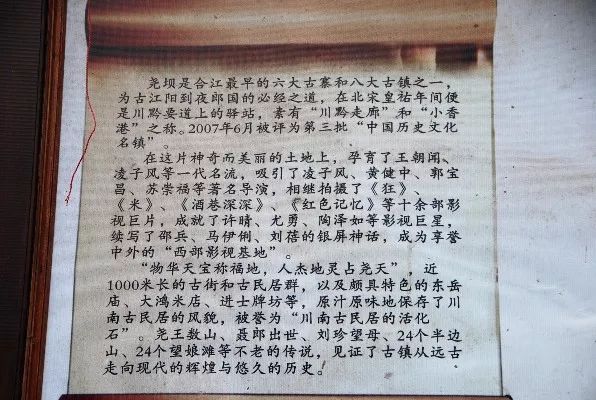 尧坝是合江最早的六大古寨和八大古镇之一，
为古江阳到夜郎国的必经之道，在北宋皇祐年间便
是川黔要道上的驿站，素有“川黔走廊”和“小香
港”之称。2007年6月被评为第三批“中国历史文化
名镇”。
在这片神奇而美丽的土地上，孕育了王朝闻、
凌子风等一代名流，吸引了凌子风、黄健中、郭宝
昌、苏崇福等著名导演，相继拍摄了《狂》、
《米》、《酒巷深深》、《红色记忆》等十余部影
视巨片，成就了许晴、尤勇、陶泽如等影视巨星，
续写了邵兵、马伊俐、刘蓓的银屏神话，成为享誉
中外的“西部影视基地”。
“物华天宝称福地，人杰地灵占尧天”，近
1000米长的古街和古民居群，以及颇具特色的东岳
庙、大鸿米店、进士牌坊等，原汁原味地保存了川
南古民居的风貌，被誉为“川南古民居的活化
石”。尧王数山、聂郎出世、刘珍望母、24个半边
山、24个望娘滩等不老的传说，见证了古镇从远古
走向现代的辉煌与悠久的历史。